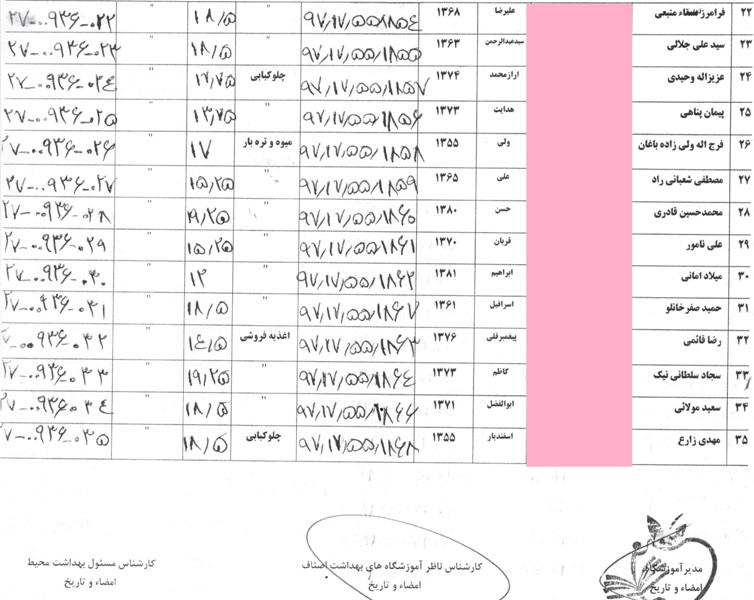 ۲۲ فرامرز صفاء منبعی علیرضا ۱۳۶۸ ۹۷٫۱۷٫۵۵٫۱۸۵۴ " ۱۸/۵ " ۲۷-۰۰۹۳۶-۰۲۲
۲۳ سید علی جلالی سیدعبدالرحمن ۱۳۶۳ ۹۷٫۱۷٫۵۵٫۱۸۵۵ " ۱۸/۵ " ۲۷-۰۰۹۳۶-۰۲۳
۲۴ عزیزاله وحیدی ارازمحمد ۱۳۷۴ ۹۷٫۱۷٫۵۵٫۱۸۵۷ چلوکبابی ۱۷٫۷۵ " ۲۷-۰۰۹۳۶-۰۲۴
۲۵ پیمان پناهی هدایت ۱۳۷۳ ۹۷٫۱۷٫۵۵٫۱۸۵۶ " ۱۳٫۷۵ " ۲۷-۰۰۹۳۶-۰۲۵
۲۶ فرج اله ولی زاده باغان ولی ۱۳۵۵ ۹۷٫۱۷٫۵۵٫۱۸۵۸ میوه و تره بار ۱۷ " ۲۷-۰۰۹۳۶-۰۲۶
۲۷ مصطفی شعبانی راد علی ۱۳۶۵ ۹۷٫۱۷٫۵۵٫۱۸۵۹ " ۱۵٫۲۵ " ۲۷-۰۰۹۳۶-۰۲۷
۲۸ محمدحسین قادری حسن ۱۳۸۰ ۹۷٫۱۷٫۵۵٫۱۸۶۰ " ۱۹٫۲۵ " ۲۷-۰۰۹۳۶-۰۲۸
۲۹ علی نامور قربان ۱۳۷۰ ۹۷٫۱۷٫۵۵٫۱۸۶۱ " ۱۵٫۲۵ " ۲۷-۰۰۹۳۶-۰۲۹
۳۰ میلاد امانی ابراهیم ۱۳۸۱ ۹۷٫۱۷٫۵۵٫۱۸۶۲ " ۱۳ " ۲۷-۰۰۹۳۶-۰۳۰
۳۱ حمید صفرخانلو اسرافیل ۱۳۶۱ ۹۷٫۱۷٫۵۵٫۱۸۶۷ " ۱۸/۵ " ۲۷-۰۰۹۳۶-۰۳۱
۳۲ رضا قائمی پیغمبرقلی ۱۳۷۶ ۹۷٫۱۷٫۵۵٫۱۸۶۳ اغذیه فروشی ۱۴٫۵ " ۲۷-۰۰۹۳۶-۰۳۲
۳۳ سجاد سلطانی نیک کاظم ۱۳۷۳ ۹۷٫۱۷٫۵۵٫۱۸۶۴ " ۱۹٫۲۵ " ۲۷-۰۰۹۳۶-۰۳۳
۳۴ سعید مولائی ابوالفضل ۱۳۷۱ ۹۷٫۱۷٫۵۵٫۱۸۶۶ " ۱۸/۵ " ۲۷-۰۰۹۳۶-۰۳۴
۳۵ مهدی زارع اسفندیار ۱۳۵۵ ۹۷٫۱۷٫۵۵٫۱۸۶۸ چلوکبابی ۱۸/۵ " ۲۷-۰۰۹۳۶-۰۳۵
مدیرآموزشگاه کارشناس ناظر آموزشگاه های بهداشت اصناف کارشناس مسئول بهداشت محیط
امضاء و تاریخ امضاء و تاریخ امضاء و تاریخ